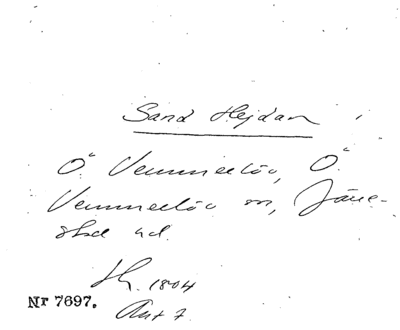 Sand Hejdan
Ö. Vemmerlöv, Ö.
Vemmerlöv sn, Järre-
stad hd.
1804
Nr 7697. Akt 7